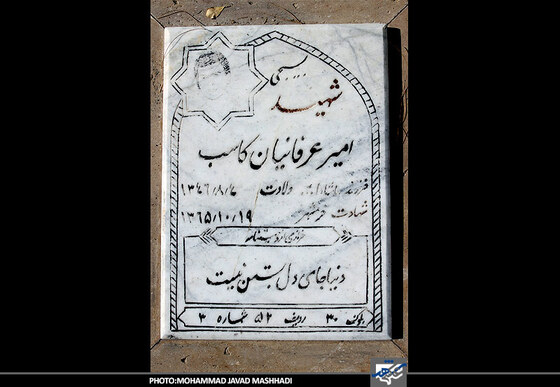 شهید
امیر عرفانیان کاسب
فرزند ولادت ۱۳۴۶/۸/۴
شهادت خرمشهر ۱۳۶۵/۱۰/۱۹
دنیا جای دل بستن نیست
بلوک ۳۰ ردیف ۵۱۲ شماره ۳
PHOTO:MOHAMMAD JAVAD MASHHADI